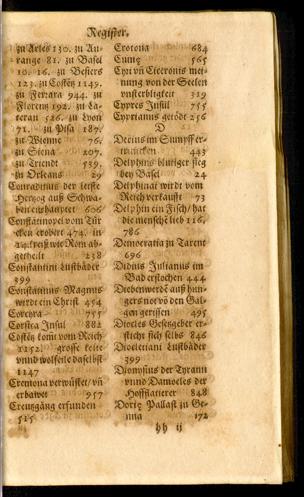 Register.
zu Arles 130. zu Au-
range 81. zu Basel
10. 16. zu Besiers
123. zu Costētz 1149.
zu Ferrara 944. zu
Florentz 192. zu La-
teran 526. zu Lyon
71. zu Pisa 187.
zu Vienne 76.
zu Siena 207.
zu Trient 539.
zu Orleans 29
Conradinus der letste
Hertzog auß Schwa-
ben enthauptet 606
Constātinopel vom Tür
cken erobert 474. in
14. kreiß wie Rom ab-
getheilt 238
Constantini Lustbäder
399
Constantinus Magnus
wirdt ein Christ 454
Corcyra 755
Corsica Insul 882
Costētz kōmt vom Reich
1252. grosse leite
vnnd wolfeile daselbst
1147
Cremona verwüstet/ vñ
erbawet 957
Creutzgäng erfunden
515
Crotona 684
Cuma 565
Cyri vñ Ciceronis mei-
nung von der Seelen
vnsterbligkeit 329
Cypres Insul 755
Cyprianus getödt 256
D
Decius im Sumpff er-
truncken 443
Delphins blutiger sieg
bey Basel 24
Delphinat wirdt vom
Reich verkaufft 73
Delphin ein Fisch/ hat
die menschē lieb 116.
786
Democratia zu Tarent
696
Didius Julianus im
Bad erstochen 444
Diebenwerdē auß hun-
gers not vō den Gal-
gen gerissen 495
Diocles Gesetzgeber er-
sticht sich selbs 846
Diocletiani Lustbäder
399
Dionysius der Tyrann
vnnd Damocles der
Hofflatierer 848
Doriæ Pallast zu Ge-
nua 172
hh ij